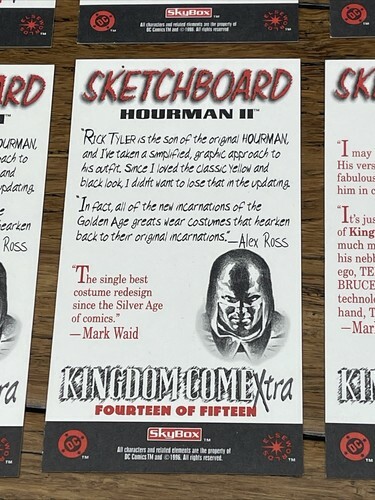 SkyBox
All characters and related elements are the property of
DC Comics TM and © 1996. All rights reserved.
SKETCHBOARD™
HOURMAN II™
"RICK TYLER is the son of the original HOURMAN,
and I've taken a simplified, graphic approach to
his outfit. Since I loved the classic yellow and
black look, I didn't want to lose that in the updating.
"In fact, all of the new incarnations of the
Golden Age greats wear costumes that hearken
back to their original incarnations."—Alex Ross
"The single best
costume redesign
since the Silver Age
of comics."
—Mark Waid
KINGDOM COME Xtra
FOURTEEN OF FIFTEEN
DC
SkyBox
All characters and related elements are the property of
DC Comics TM and © 1996. All rights reserved.
ARD
™
MAN,
ach to
and
updating.
e
hearken
Ross
Xtra
SK
"I may
His vers
fabulous
him in c
"It's jus
of King
much m
his nebb
ego, TE
BRUCE
technolo
hand, T
—Mar
KIN
DC